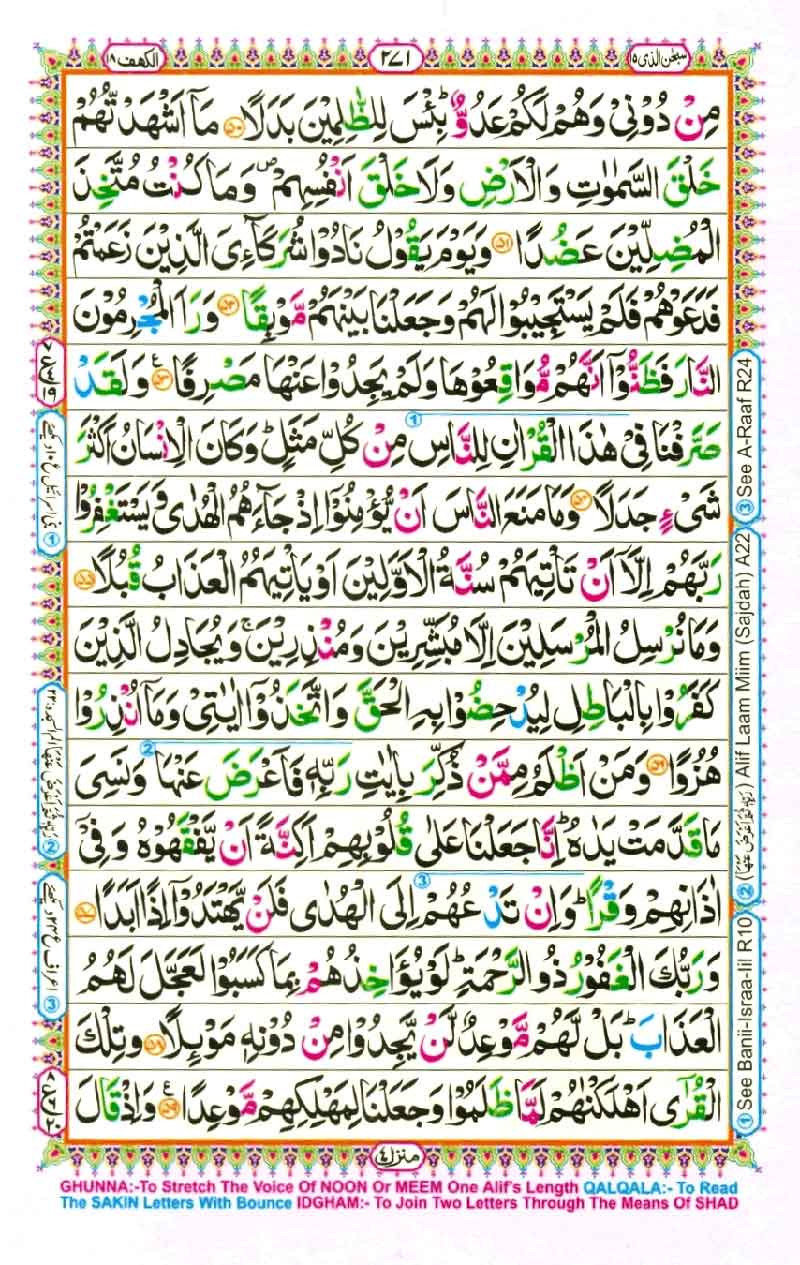 الكهف ١٨
٢٧١
سبحٰن الذی ١٥
مِنْ دُوْنِیْ وَهُمْ لَكُمْ عَدُوٌّ ؕ بِئْسَ لِلظّٰلِمِیْنَ بَدَلًا ۝۵۰ مَاۤ اَشْهَدْتُّهُمْ
خَلْقَ السَّمٰوٰتِ وَالْاَرْضِ وَلَا خَلْقَ اَنْفُسِهِمْ ۪ وَمَا كُنْتُ مُتَّخِذَ
الْمُضِلِّیْنَ عَضُدًا ۝۵۱ وَیَوْمَ یَقُوْلُ نَادُوْا شُرَكَآءِیَ الَّذِیْنَ زَعَمْتُمْ
فَدَعَوْهُمْ فَلَمْ یَسْتَجِیْبُوْا لَهُمْ وَجَعَلْنَا بَیْنَهُمْ مَّوْبِقًا ۝۵۲ وَرَاَ الْمُجْرِمُوْنَ
النَّارَ فَظَنُّوْۤا اَنَّهُمْ مُّوَاقِعُوْهَا وَلَمْ یَجِدُوْا عَنْهَا مَصْرِفًا ۝۵۳ وَلَقَدْ
صَرَّفْنَا فِیْ هٰذَا الْقُرْاٰنِ لِلنَّاسِ مِنْ كُلِّ مَثَلٍ ؕ وَكَانَ الْاِنْسَانُ اَكْثَرَ
شَیْءٍ جَدَلًا ۝۵۴ وَمَا مَنَعَ النَّاسَ اَنْ یُّؤْمِنُوْۤا اِذْ جَآءَهُمُ الْهُدٰی وَیَسْتَغْفِرُوْا
رَبَّهُمْ اِلَّاۤ اَنْ تَاْتِیَهُمْ سُنَّةُ الْاَوَّلِیْنَ اَوْ یَاْتِیَهُمُ الْعَذَابُ قُبُلًا ۝۵۵
وَمَا نُرْسِلُ الْمُرْسَلِیْنَ اِلَّا مُبَشِّرِیْنَ وَمُنْذِرِیْنَ ۚ وَیُجَادِلُ الَّذِیْنَ
كَفَرُوْا بِالْبَاطِلِ لِیُدْحِضُوْا بِهِ الْحَقَّ وَاتَّخَذُوْۤا اٰیٰتِیْ وَمَاۤ اُنْذِرُوْا
هُزُوًا ۝۵۶ وَمَنْ اَظْلَمُ مِمَّنْ ذُكِّرَ بِاٰیٰتِ رَبِّهٖ فَاَعْرَضَ عَنْهَا وَنَسِیَ
مَا قَدَّمَتْ یَدٰهُ ؕ اِنَّا جَعَلْنَا عَلٰی قُلُوْبِهِمْ اَكِنَّةً اَنْ یَّفْقَهُوْهُ وَفِیْۤ
اٰذَانِهِمْ وَقْرًا ؕ وَاِنْ تَدْعُهُمْ اِلَی الْهُدٰی فَلَنْ یَّهْتَدُوْۤا اِذًا اَبَدًا ۝۵۷
وَرَبُّكَ الْغَفُوْرُ ذُو الرَّحْمَةِ ؕ لَوْ یُؤَاخِذُهُمْ بِمَا كَسَبُوْا لَعَجَّلَ لَهُمُ
الْعَذَابَ ؕ بَلْ لَّهُمْ مَّوْعِدٌ لَّنْ یَّجِدُوْا مِنْ دُوْنِهٖ مَوْىِٕلًا ۝۵۸ وَتِلْكَ
الْقُرٰۤی اَهْلَكْنٰهُمْ لَمَّا ظَلَمُوْا وَجَعَلْنَا لِمَهْلِكِهِمْ مَّوْعِدًا ۝۵۹ وَاِذْ قَالَ
منزل ٤
① See Banii-Israa-Iil R10
② Alif Laam Miim (Sajdah) A22
③ See A-Raaf R24
GHUNNA:-To Stretch The Voice Of NOON Or MEEM One Alif's Length QALQALA:- To Read
The SAKIN Letters With Bounce IDGHAM:- To Join Two Letters Through The Means Of SHAD